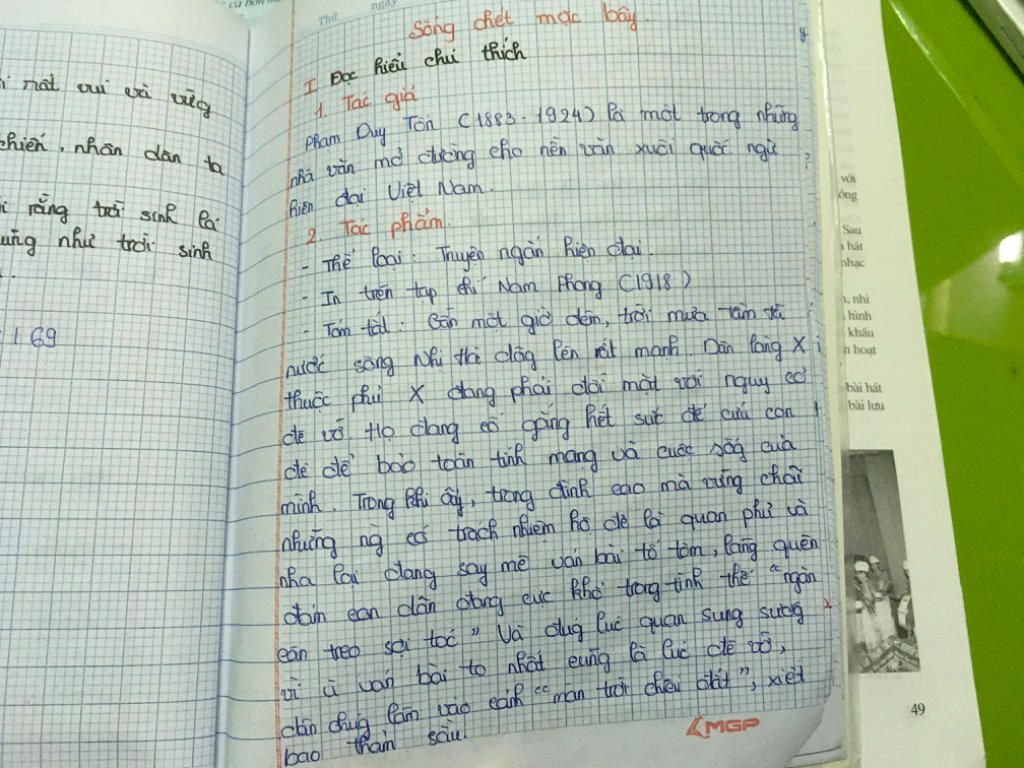 Thứ ngày
Sống chết mặc bay.
I Đọc hiểu chú thích
1. Tác giả
Phạm Duy Tốn (1883-1924) là một trong những
nhà văn mở đường cho nền văn xuôi quốc ngữ
hiện đại Việt Nam.
2. Tác phẩm.
- Thể loại: Truyện ngắn hiện đại.
- In trên tạp chí Nam Phong (1918)
- Tóm tắt: Gần một giờ đêm, trời mưa tầm tã
nước sông Nhị Hà dâng lên rất mạnh. Dân làng X
thuộc phủ X đang phải đối mặt với nguy cơ
đê vỡ Họ đang cố gắng hết sức để cứu con
đê để bảo toàn tính mạng và cuộc sống của
mình. Trong khi ấy, trong đình cao mà vững chãi
những ng có trách nhiệm hộ đê là quan phủ và
nha lại đang say mê ván bài tổ tôm, lãng quên
đám con dân đang cực khổ trong tình thế "ngàn
cân treo sợi tóc" Và đug lúc quan sung sướg
vì ù ván bài to nhất cũng là lúc đê vỡ,
dân chúg lâm vào cảnh "màn trời chiếu đất", xiết
bao thảm sầu.
MGP
i rất vui và vữg
chiến, nhân dân ta
i rằng trời sinh là
ũng như trời sinh
169
với
ông
Sau
hát
nhạc
, nhi
hình
khấu
n hoạt
bài hát
bài lưu
49